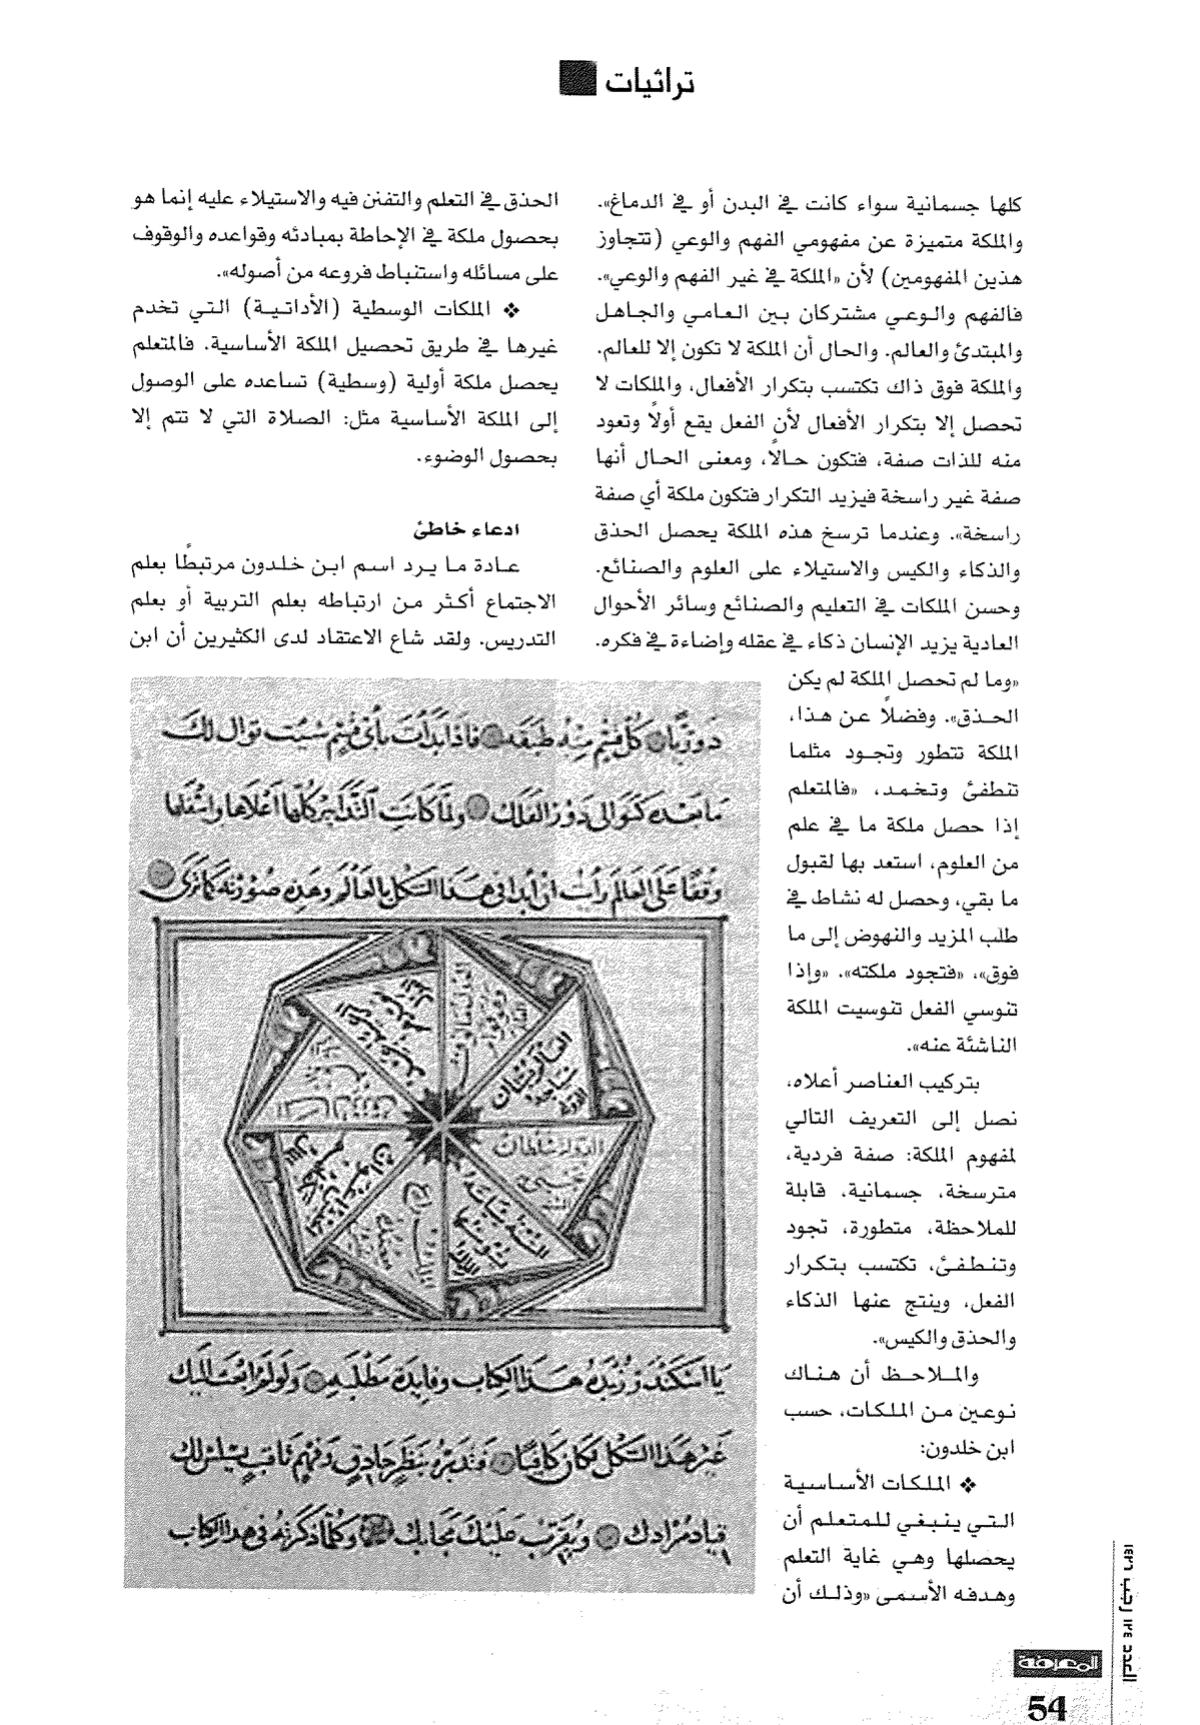 تراثيات
كلها جسمانية سواء كانت في البدن أو في الدماغ».
والملكة متميزة عن مفهومي الفهم والوعي (تتجاوز
هذين المفهومين) لأن «الملكة في غير الفهم والوعي».
فالفهم والوعي مشتركان بين العامي والجاهل
والمبتدئ والعالم. والحال أن الملكة لا تكون إلا للعالم.
والملكة فوق ذاك تكتسب بتكرار الأفعال، والملكات لا
تحصل إلا بتكرار الأفعال لأن الفعل يقع أولاً وتعود
منه للذات صفة، فتكون حالاً، ومعنى الحال أنها
صفة غير راسخة فيزيد التكرار فتكون ملكة أي صفة
راسخة». وعندما ترسخ هذه الملكة يحصل الحذق
والذكاء والكيس والاستيلاء على العلوم والصنائع.
وحسن الملكات في التعليم والصنائع وسائر الأحوال
العادية يزيد الإنسان ذكاء في عقله وإضاءة في فكره.
«وما لم تحصل الملكة لم يكن
الحذق». وفضلاً عن هذا،
الملكة تتطور وتجود مثلما
تنطفئ وتخمد، «فالمتعلم
إذا حصل ملكة ما في علم
من العلوم، استعد بها لقبول
ما بقي، وحصل له نشاط في
طلب المزيد والنهوض إلى ما
فوق»، «فتجود ملكته». «وإذا
تنوسي الفعل تنوسيت الملكة
الناشئة عنه».
بتركيب العناصر أعلاه،
نصل إلى التعريف التالي
لمفهوم الملكة: صفة فردية،
مترسخة، جسمانية، قابلة
للملاحظة، متطورة، تجود
وتنطفئ، تكتسب بتكرار
الفعل، وينتج عنها الذكاء
والحذق والكيس».
والملاحظ أن هناك
نوعين من الملكات، حسب
ابن خلدون:
❖ الملكات الأساسية
التي ينبغي للمتعلم أن
يحصلها وهي غاية التعلم
وهدفه الأسمى «وذلك أن
الحذق في التعلم والتفنن فيه والاستيلاء عليه إنما هو
بحصول ملكة في الإحاطة بمبادئه وقواعده والوقوف
على مسائله واستنباط فروعه من أصوله».
❖ الملكات الوسطية (الأداتية) التي تخدم
غيرها في طريق تحصيل الملكة الأساسية. فالمتعلم
يحصل ملكة أولية (وسطية) تساعده على الوصول
إلى الملكة الأساسية مثل: الصلاة التي لا تتم إلا
بحصول الوضوء.
ادعاء خاطئ
عادة ما يرد اسم ابن خلدون مرتبطًا بعلم
الاجتماع أكثر من ارتباطه بعلم التربية أو بعلم
التدريس. ولقد شاع الاعتقاد لدى الكثيرين أن ابن
كل قسم منه طبقه فاذا بدأت بأي قسم شئت توالى لك
ما بعده كتوالي دور الفلك ولما كانت التدابير كلها أعلاها وأسفلها
على العالم رأيت ان في هذا الشكل بالعالم وهذه صورته كما ترى
يا اسكندر زبدة هذا الكتاب وفايدة مطلبه ولو لم ابعث اليك
غير هذا الشكل لكان كافيا فتدبره بنظر حاذق وفهم ثاقب يسلس لك
قياد مرادك ويقرب عليك وكلما ذكرته في هذا الكتاب
العدد ١٢٤ رجب ١٤٢٦
المعرفة
54